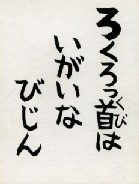 ろくろっ首は
いがいな
びじん